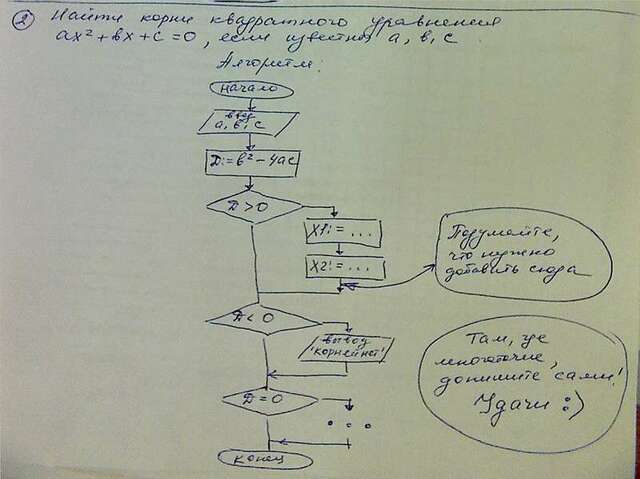 ② Найти корни квадратного уравнения
ax²+bx+c=0, если известны a, b, c
Алгоритм:
начало
ввод
a, b, c
D:=b²-4ac
D>0
x1:=...
x2:=...
Подумайте,
что нужно
добавить сюда
D<0
вывод
'корней нет'
Там, где
многоточие,
допишите сами!
Удачи :)
D=0
...
конец